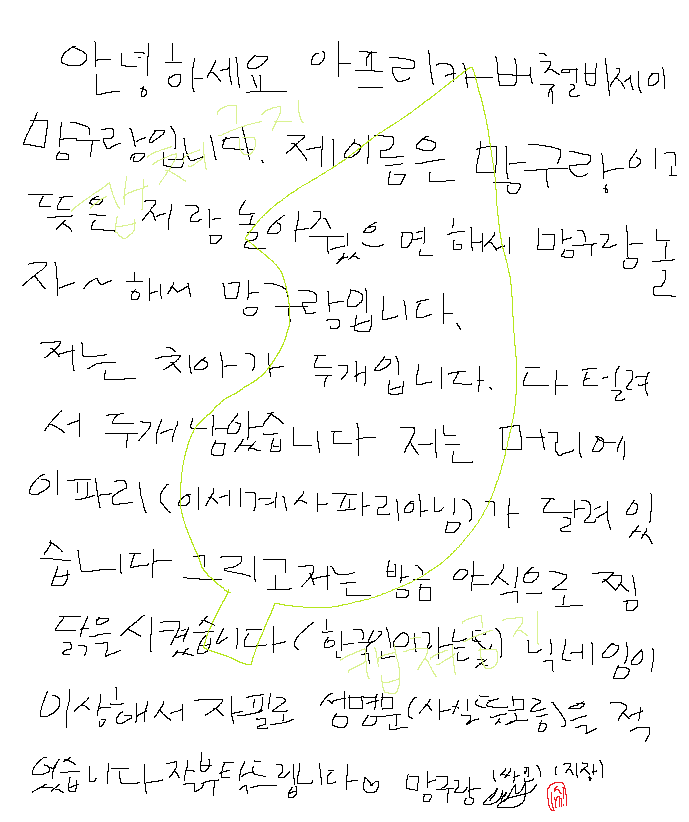 안녕하세요 아프리카 버츄얼비제이
맘구랑입니다. 제이름은 맘구랑이고
뜻은 저랑 놀아주웠으면해서 맘구랑놀
자~해서 맘구랑입니다.
저는 치아가 두개입니다. 다 털려
서 두개남았습니다 저는 머리에
이파리(이세계사파리아님)가 달려있
습니다 그리고저는 방금 야식으로 찜
닭을시켰습니다(한국인이라는뜻) 닉네임이
이상해서 자필로 성명문(사실뜻모름)을 적
었습니다 잘부탁드립니다♡ 맘구랑 (싸인) (지장)
캡쳐금지
캡쳐금지